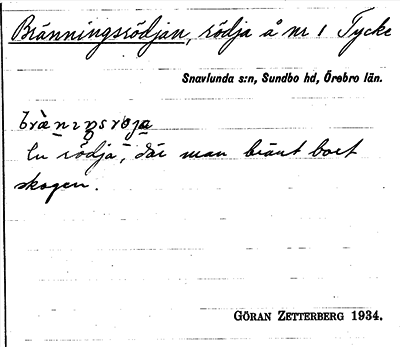 Bränningsrödjan, rödja å nr 1 Tycke
Snavlunda s:n, Sundbo hd, Örebro län.
En rödja, där man bränt bort
skogen.
GÖRAN ZETTERBERG 1934.